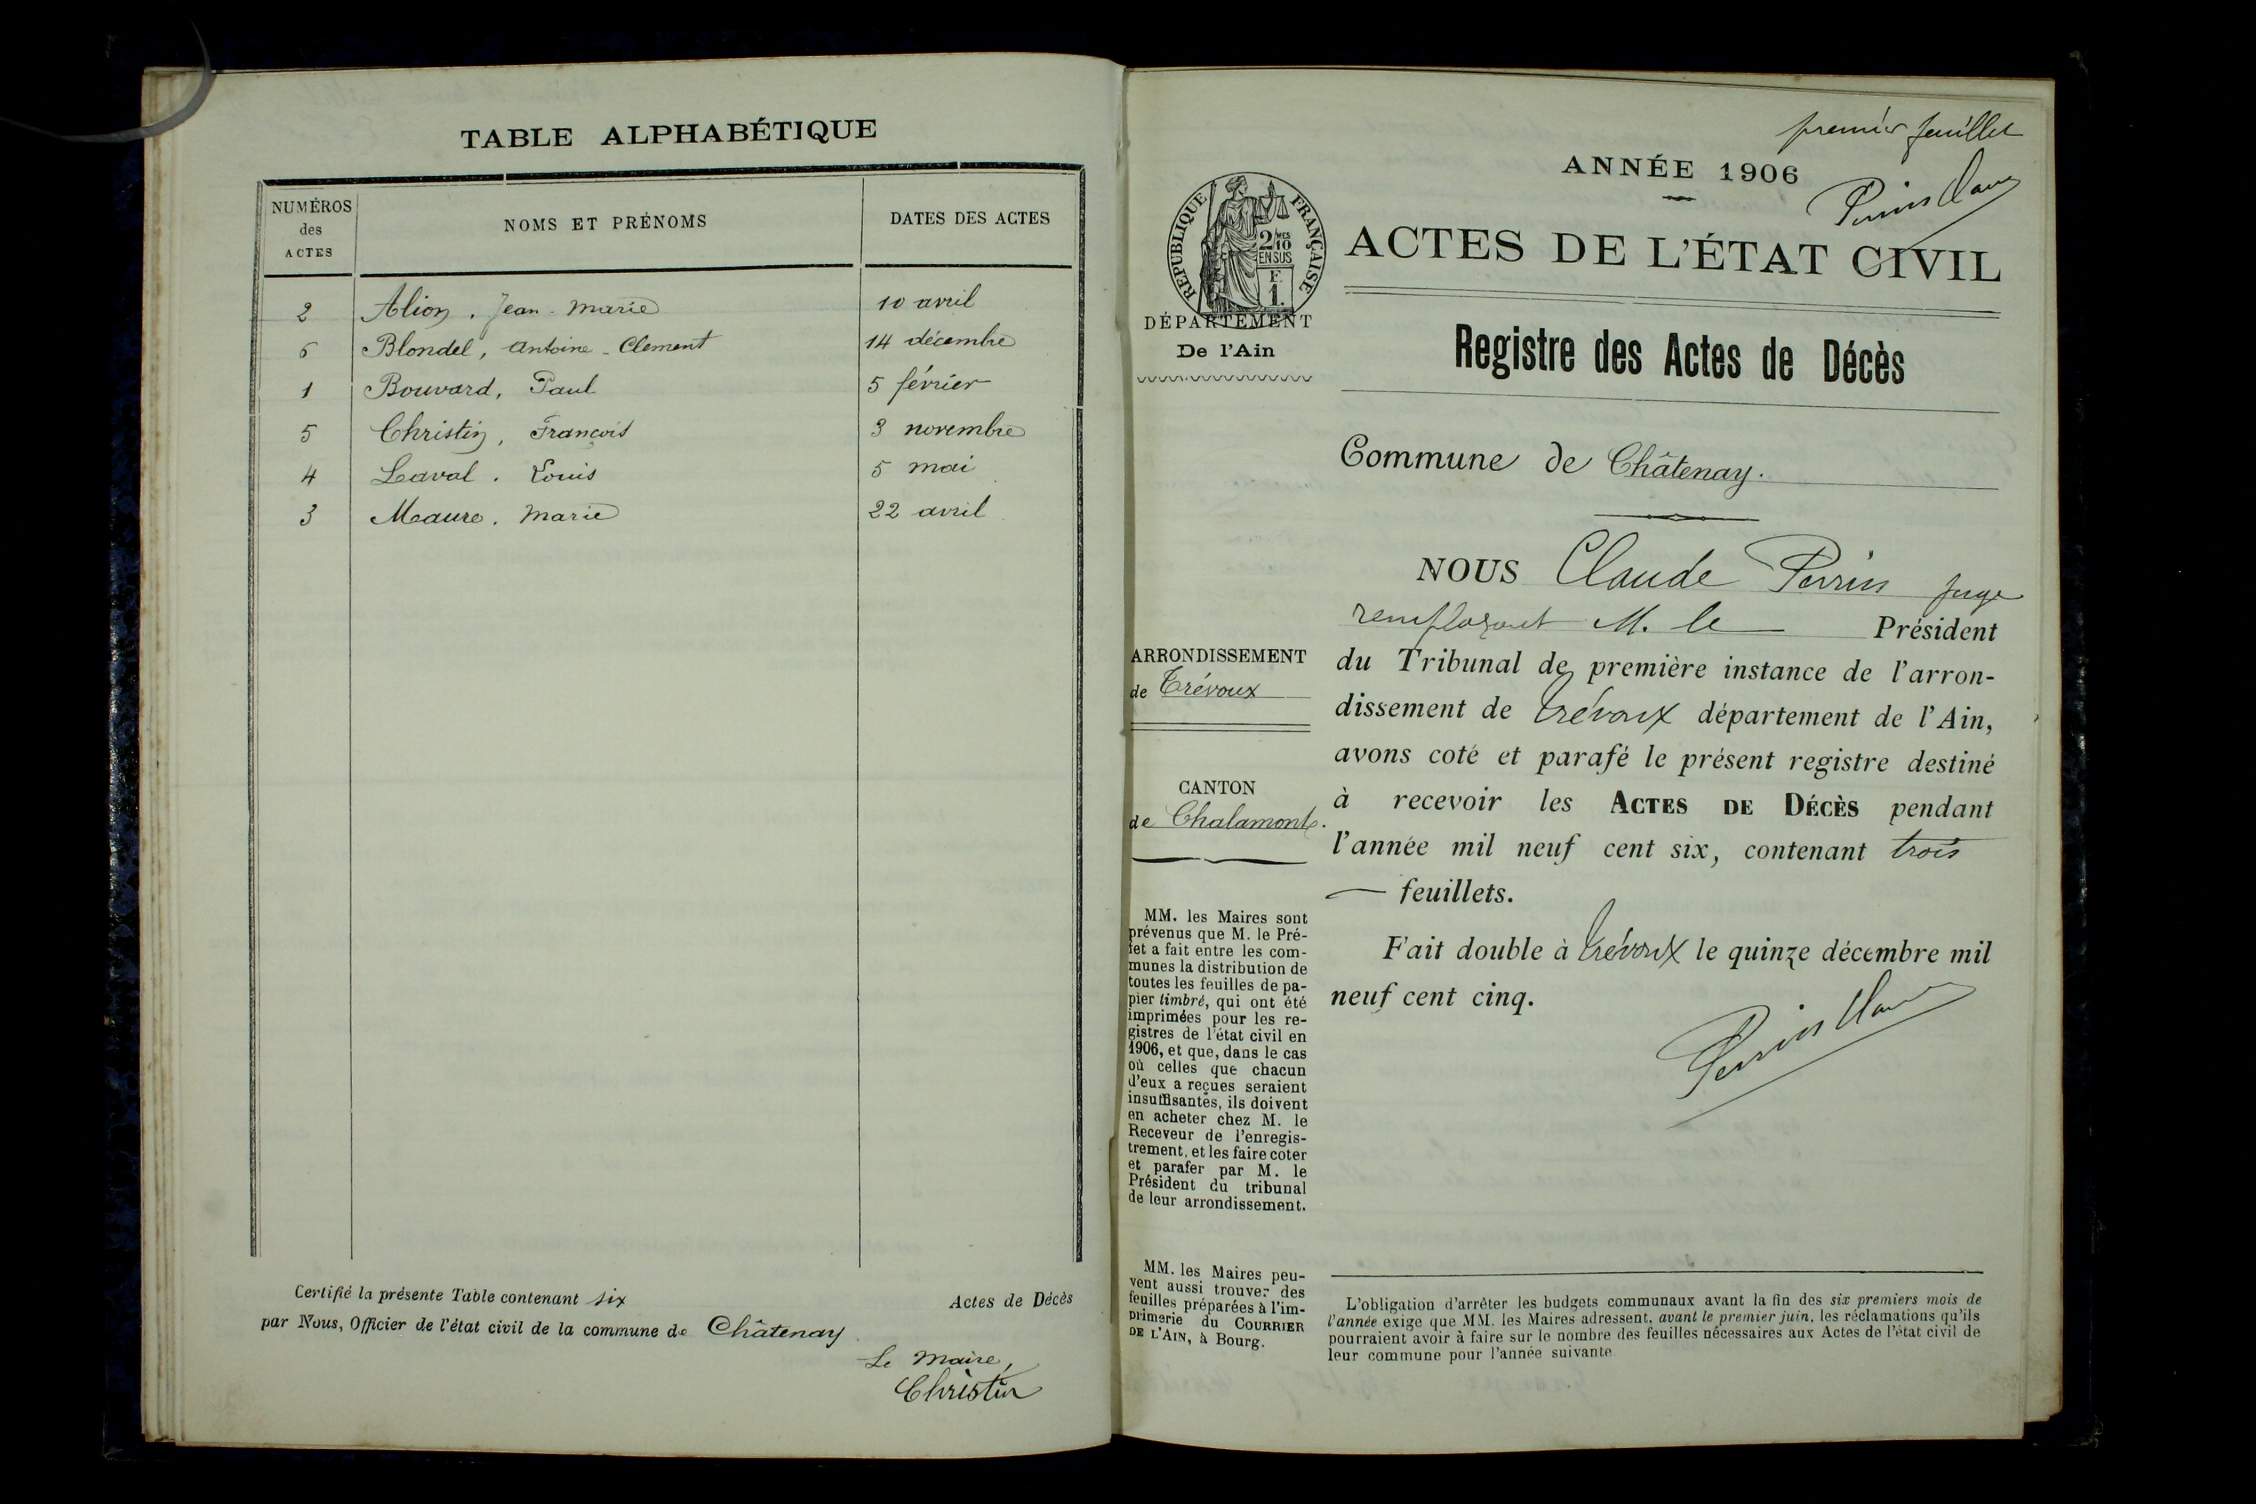 TABLE ALPHABÉTIQUE
NUMÉROS des ACTES
NOMS ET PRÉNOMS
DATES DES ACTES
2 Alion, Jean-Marie 10 avril
6 Blondel, Antoine-Clement 14 décembre
1 Bouvard, Paul 5 février
5 Christin, François 3 novembre
4 Laval, Louis 5 mai
3 Meaure, Marie 22 avril
Certifié la présente Table contenant six Actes de Décès
par Nous, Officier de l'état civil de la commune de Châtenay
Le Maire,
Christin
premier feuillet
Perrin Claude
ANNÉE 1906
RÉPUBLIQUE FRANÇAISE
2/10 MES
EN SUS
F.
1.
DÉPARTEMENT
De l'Ain
ACTES DE L'ÉTAT CIVIL
Registre des Actes de Décès
Commune de Châtenay.
NOUS Claude Perrin juge
remplaçant M. le Président
du Tribunal de première instance de l'arron-
dissement de Trévoux département de l'Ain,
avons coté et parafé le présent registre destiné
à recevoir les ACTES DE DÉCÈS pendant
l'année mil neuf cent six, contenant trois
— feuillets.
Fait double à Trévoux le quinze décembre mil
neuf cent cinq.
Perrin Claude
ARRONDISSEMENT
de Trévoux
CANTON
de Chalamont.
MM. les Maires sont
prévenus que M. le Pré-
fet a fait entre les com-
munes la distribution de
toutes les feuilles de pa-
pier timbré, qui ont été
imprimées pour les re-
gistres de l'état civil en
1906, et que, dans le cas
où celles que chacun
d'eux a reçues seraient
insuffisantes, ils doivent
en acheter chez M. le
Receveur de l'enregis-
trement, et les faire coter
et parafer par M. le
Président du tribunal
de leur arrondissement.
MM. les Maires peu-
vent aussi trouver des
feuilles préparées à l'im-
primerie du COURRIER
DE L'AIN, à Bourg.
L'obligation d'arrêter les budgets communaux avant la fin des six premiers mois de
l'année exige que MM. les Maires adressent, avant le premier juin, les réclamations qu'ils
pourraient avoir à faire sur le nombre des feuilles nécessaires aux Actes de l'état civil de
leur commune pour l'année suivante